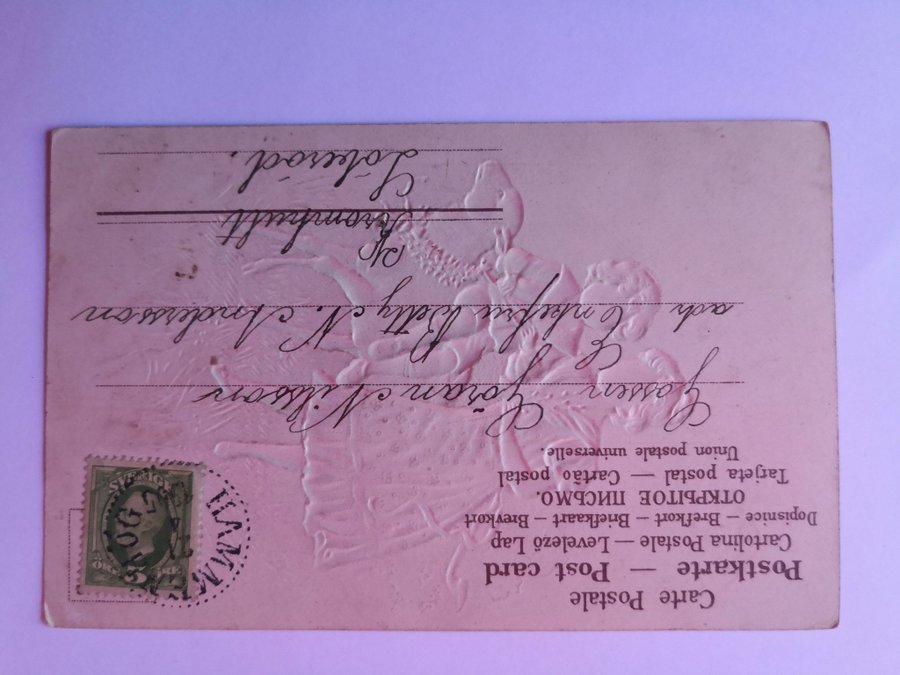 Carte Postale
Postkarte — Post card
Cartolina Postale — Levelező Lap
Dopisnice — Brefkort — Briefkaart — Brevkort
ОТКРЫТОЕ ПИСЬМО.
Tarjeta postal — Cartão postal
Union postale universelle.
SVERIGE
5
HAMM
Gossen Göran Nilsson
adr Enkefru Betty N. Andersson
Kromhult
Lökeröd.